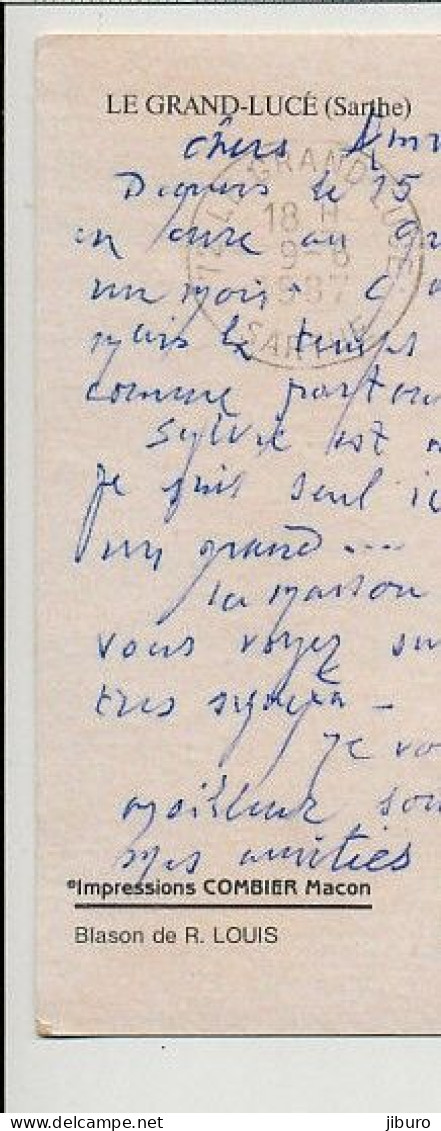 LE GRAND-LUCÉ (Sarthe)
chers Am
Depuis le 15
en cure au Gr
un mois. C
mais le temps
comme partou
Sylvie est
Je suis seul ic
un grand ...
la maison
vous voyez su
très
Je vo
meilleur sou
mes amitiés
72 LE GRAND LUCE
18 H
9-6
1987
SARTHE
®Impressions COMBIER Macon
Blason de R. LOUIS
jiburo